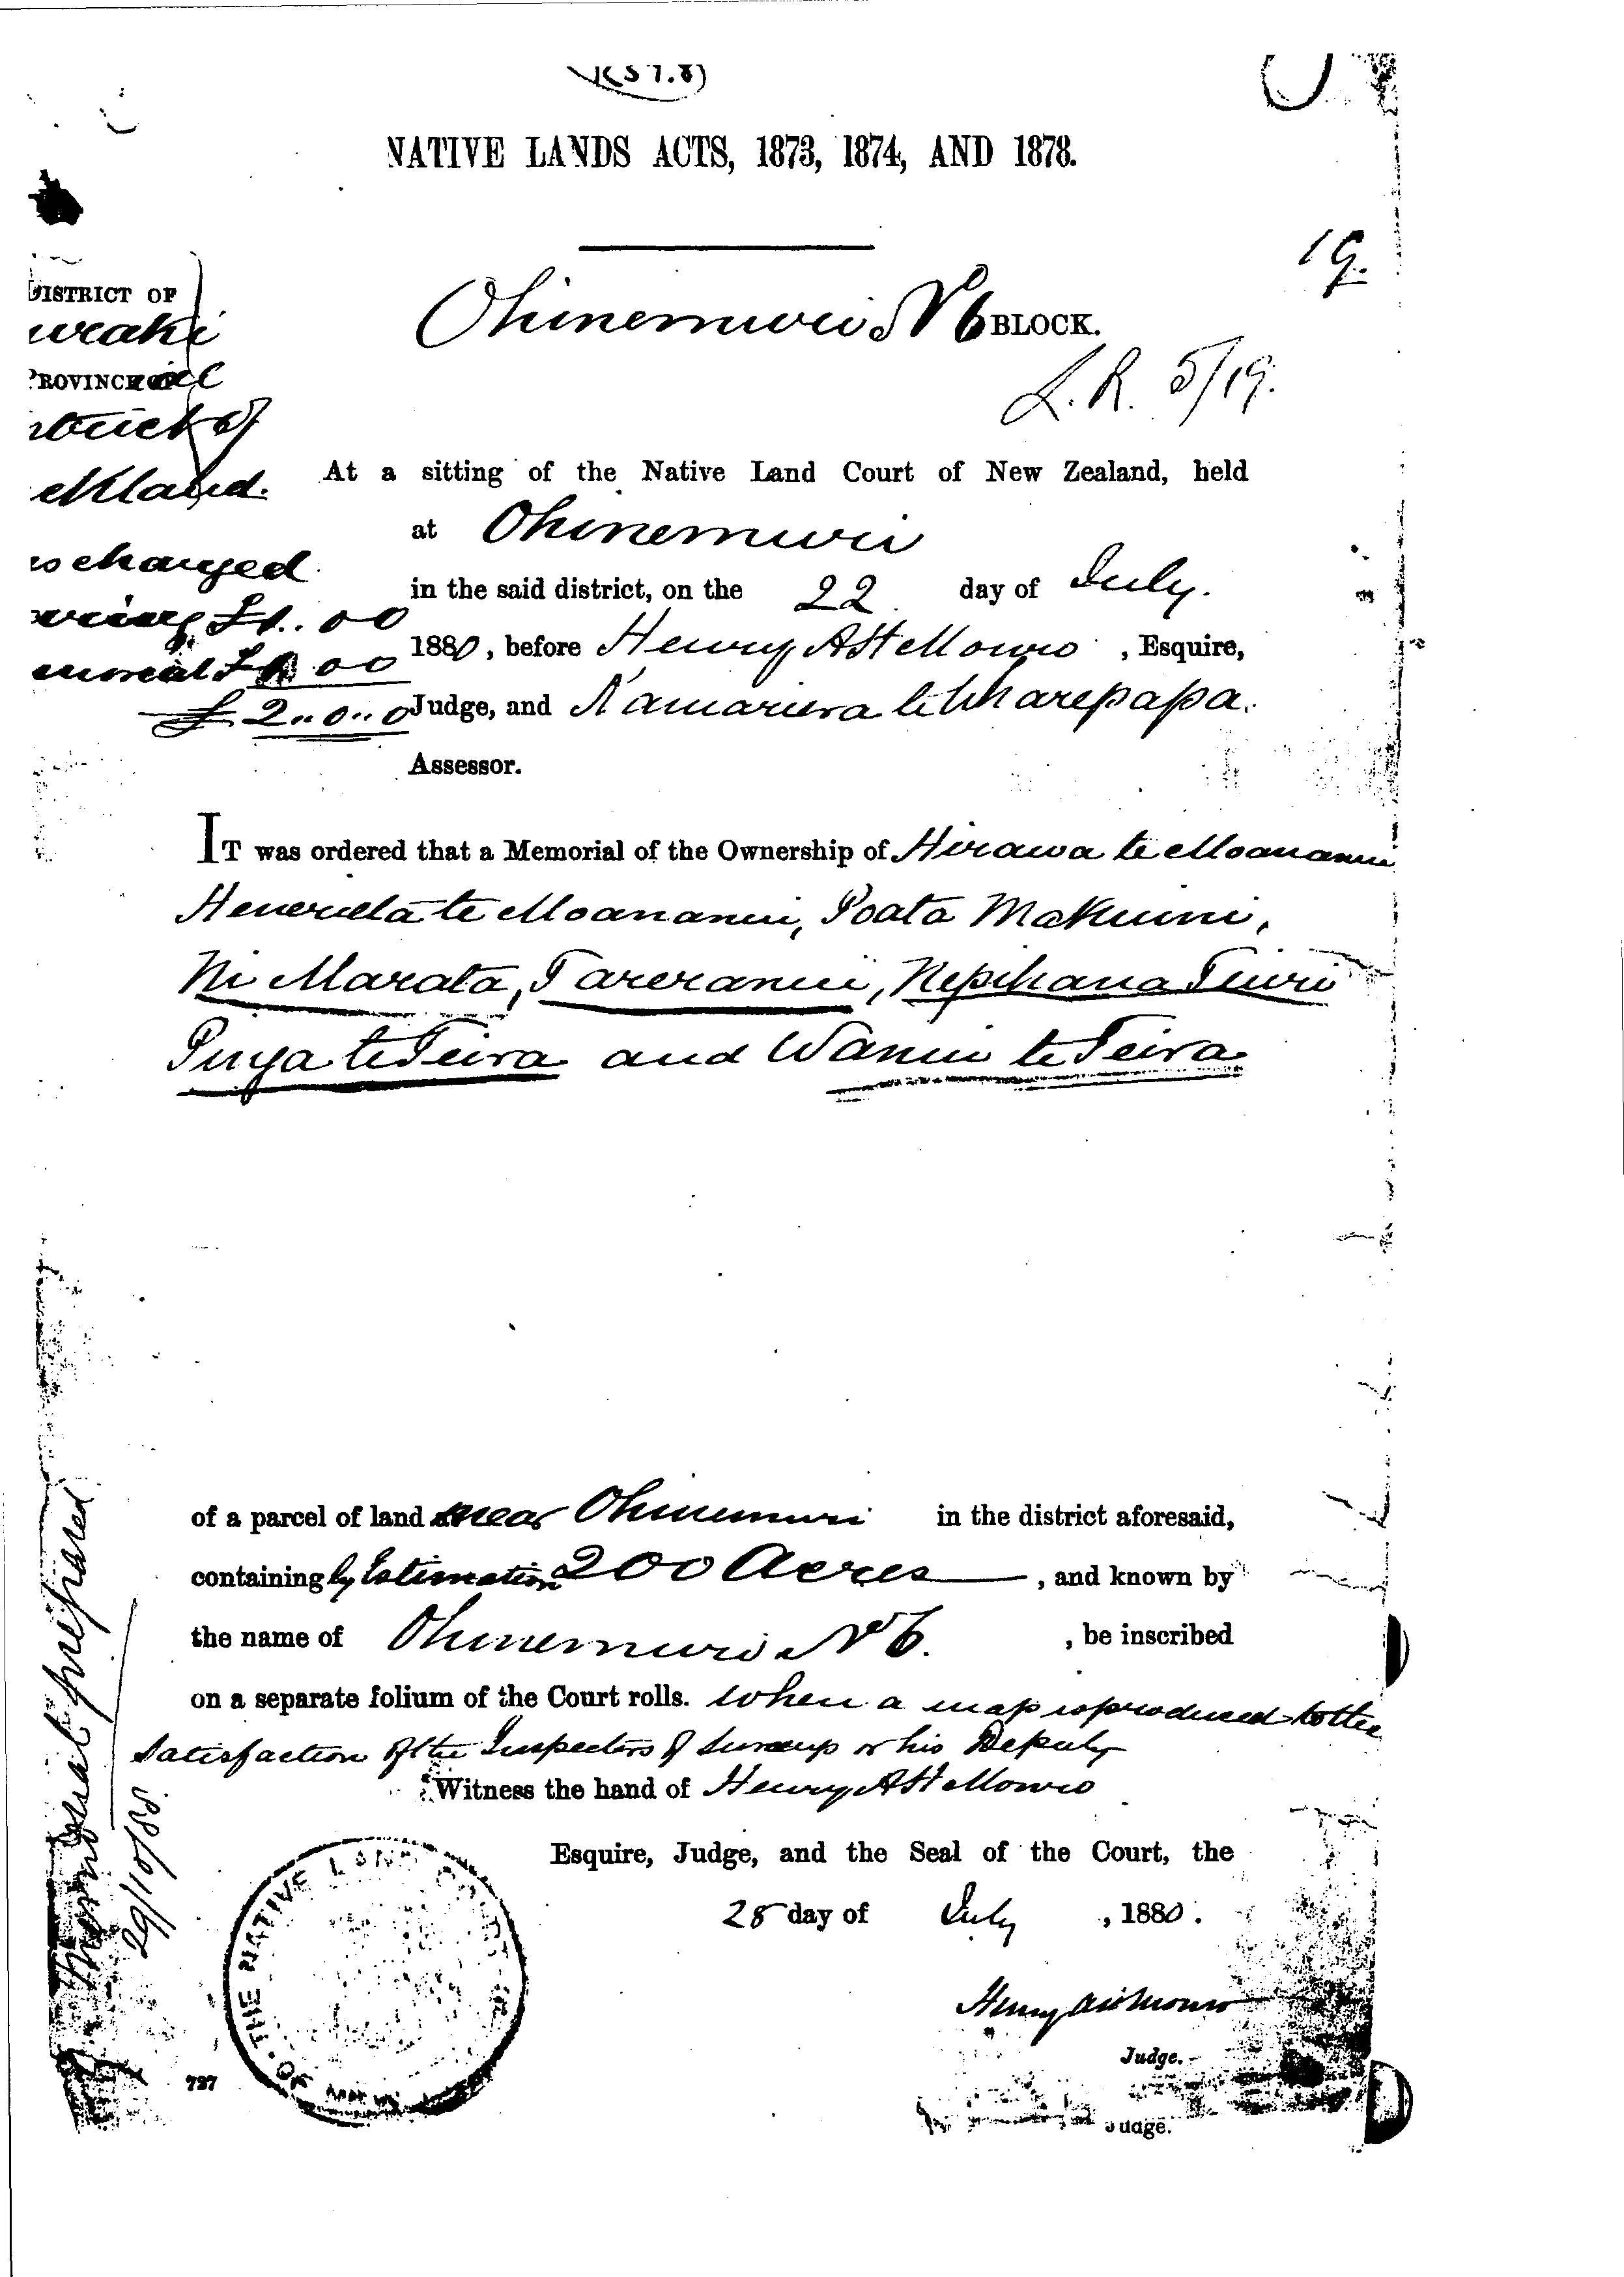 NATIVE LANDS ACTS, 1873, 1874, AND 1878.
19.
DISTRICT OF
Ohinemuri No 6 BLOCK.
L. R. 5/19.
At a sitting of the Native Land Court of New Zealand, held
at Ohinemuri
in the said district, on the 22 day of July.
1880, before Henry A H Monro, Esquire,
£2..0..0
Judge, and Hamariera te Wharepapa.
Assessor.
IT was ordered that a Memorial of the Ownership of Hirawa te Moananui
Henerieta te Moananui, Poata Makuini,
Ni Marata, Tareranui, Nepihana Tiuri
Puga te Teira and Wanui te Teira
of a parcel of land near Ohinemuri in the district aforesaid,
containing by Estimation 200 Acres, and known by
the name of Ohinemuri No 6., be inscribed
on a separate folium of the Court rolls. When a map is produced to the
Satisfaction of the Inspector of Surveys or his Deputy
Witness the hand of Henry A H Monro
Esquire, Judge, and the Seal of the Court, the
28 day of July, 1880.
Henry A H Monro
Judge.
Judge.
727
THE NATIVE LAND COURT OF
Memorial prepared
29/10/80.